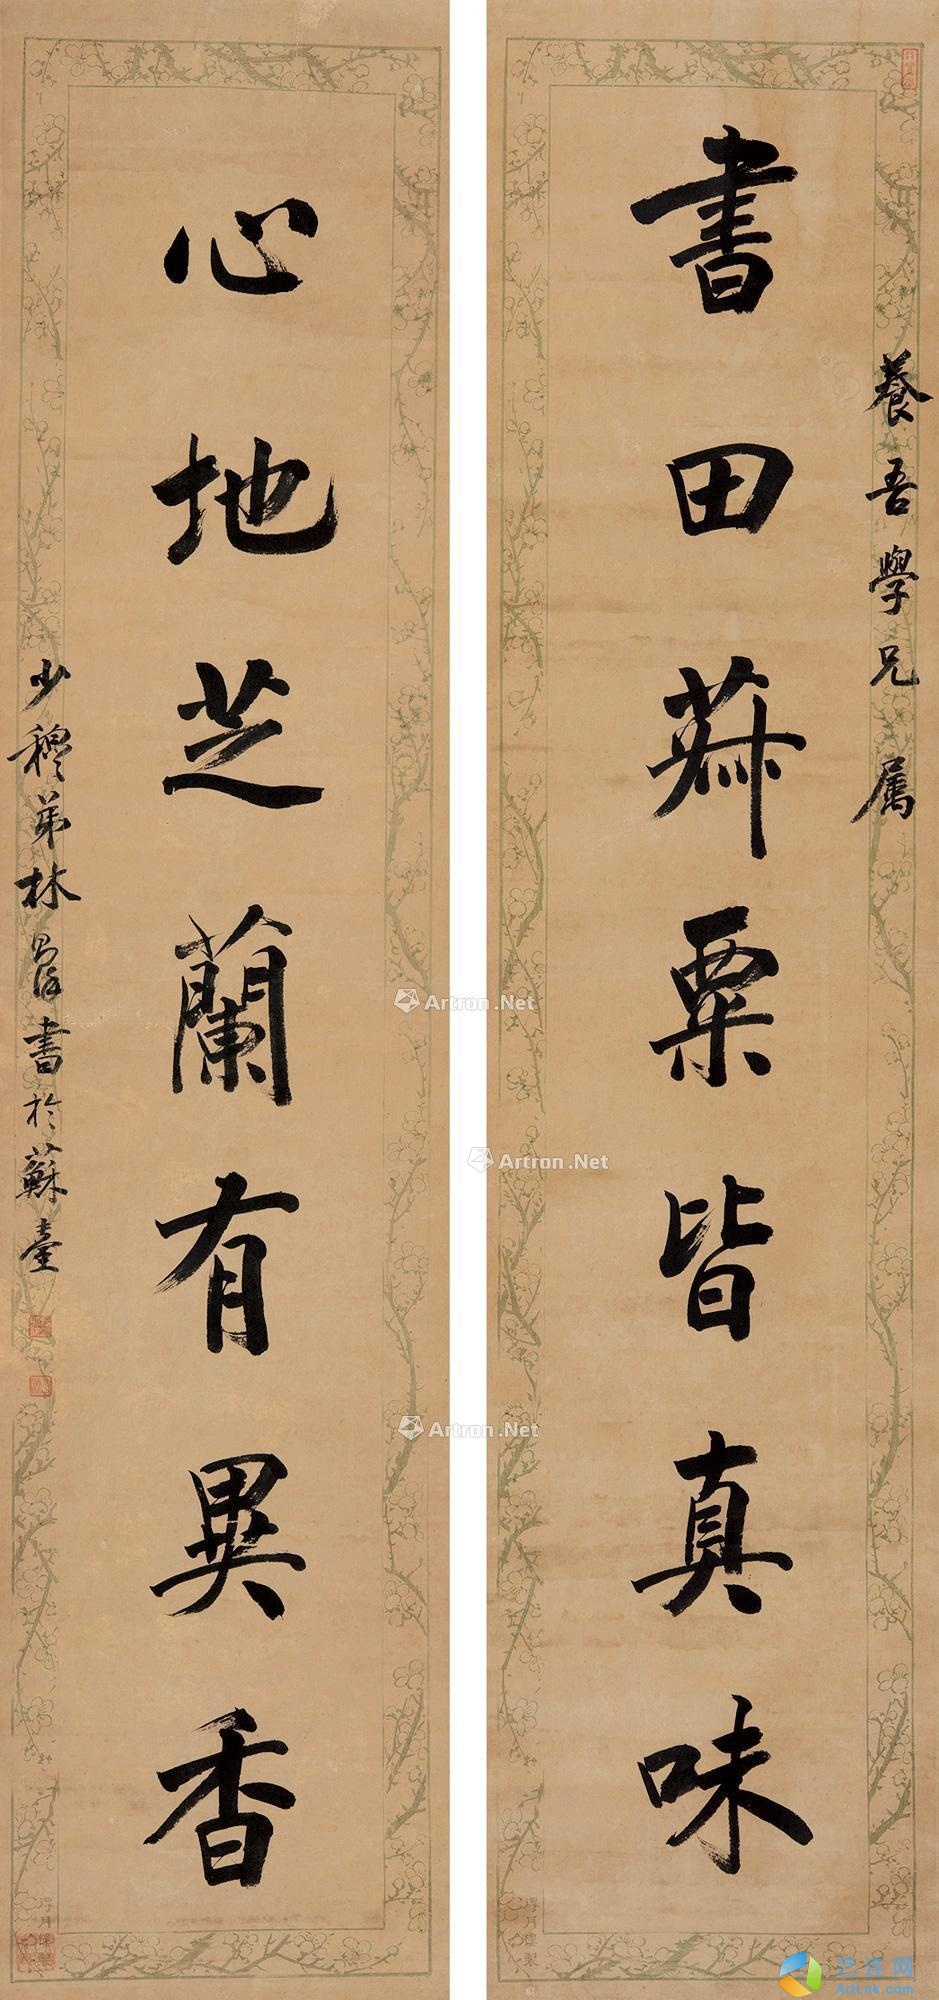 養吾學兄屬
書田菽粟皆真味
心地芝蘭有異香
少穆弟林則徐書於蘇臺
Artron.Net
Artron.Net
Artron.Net